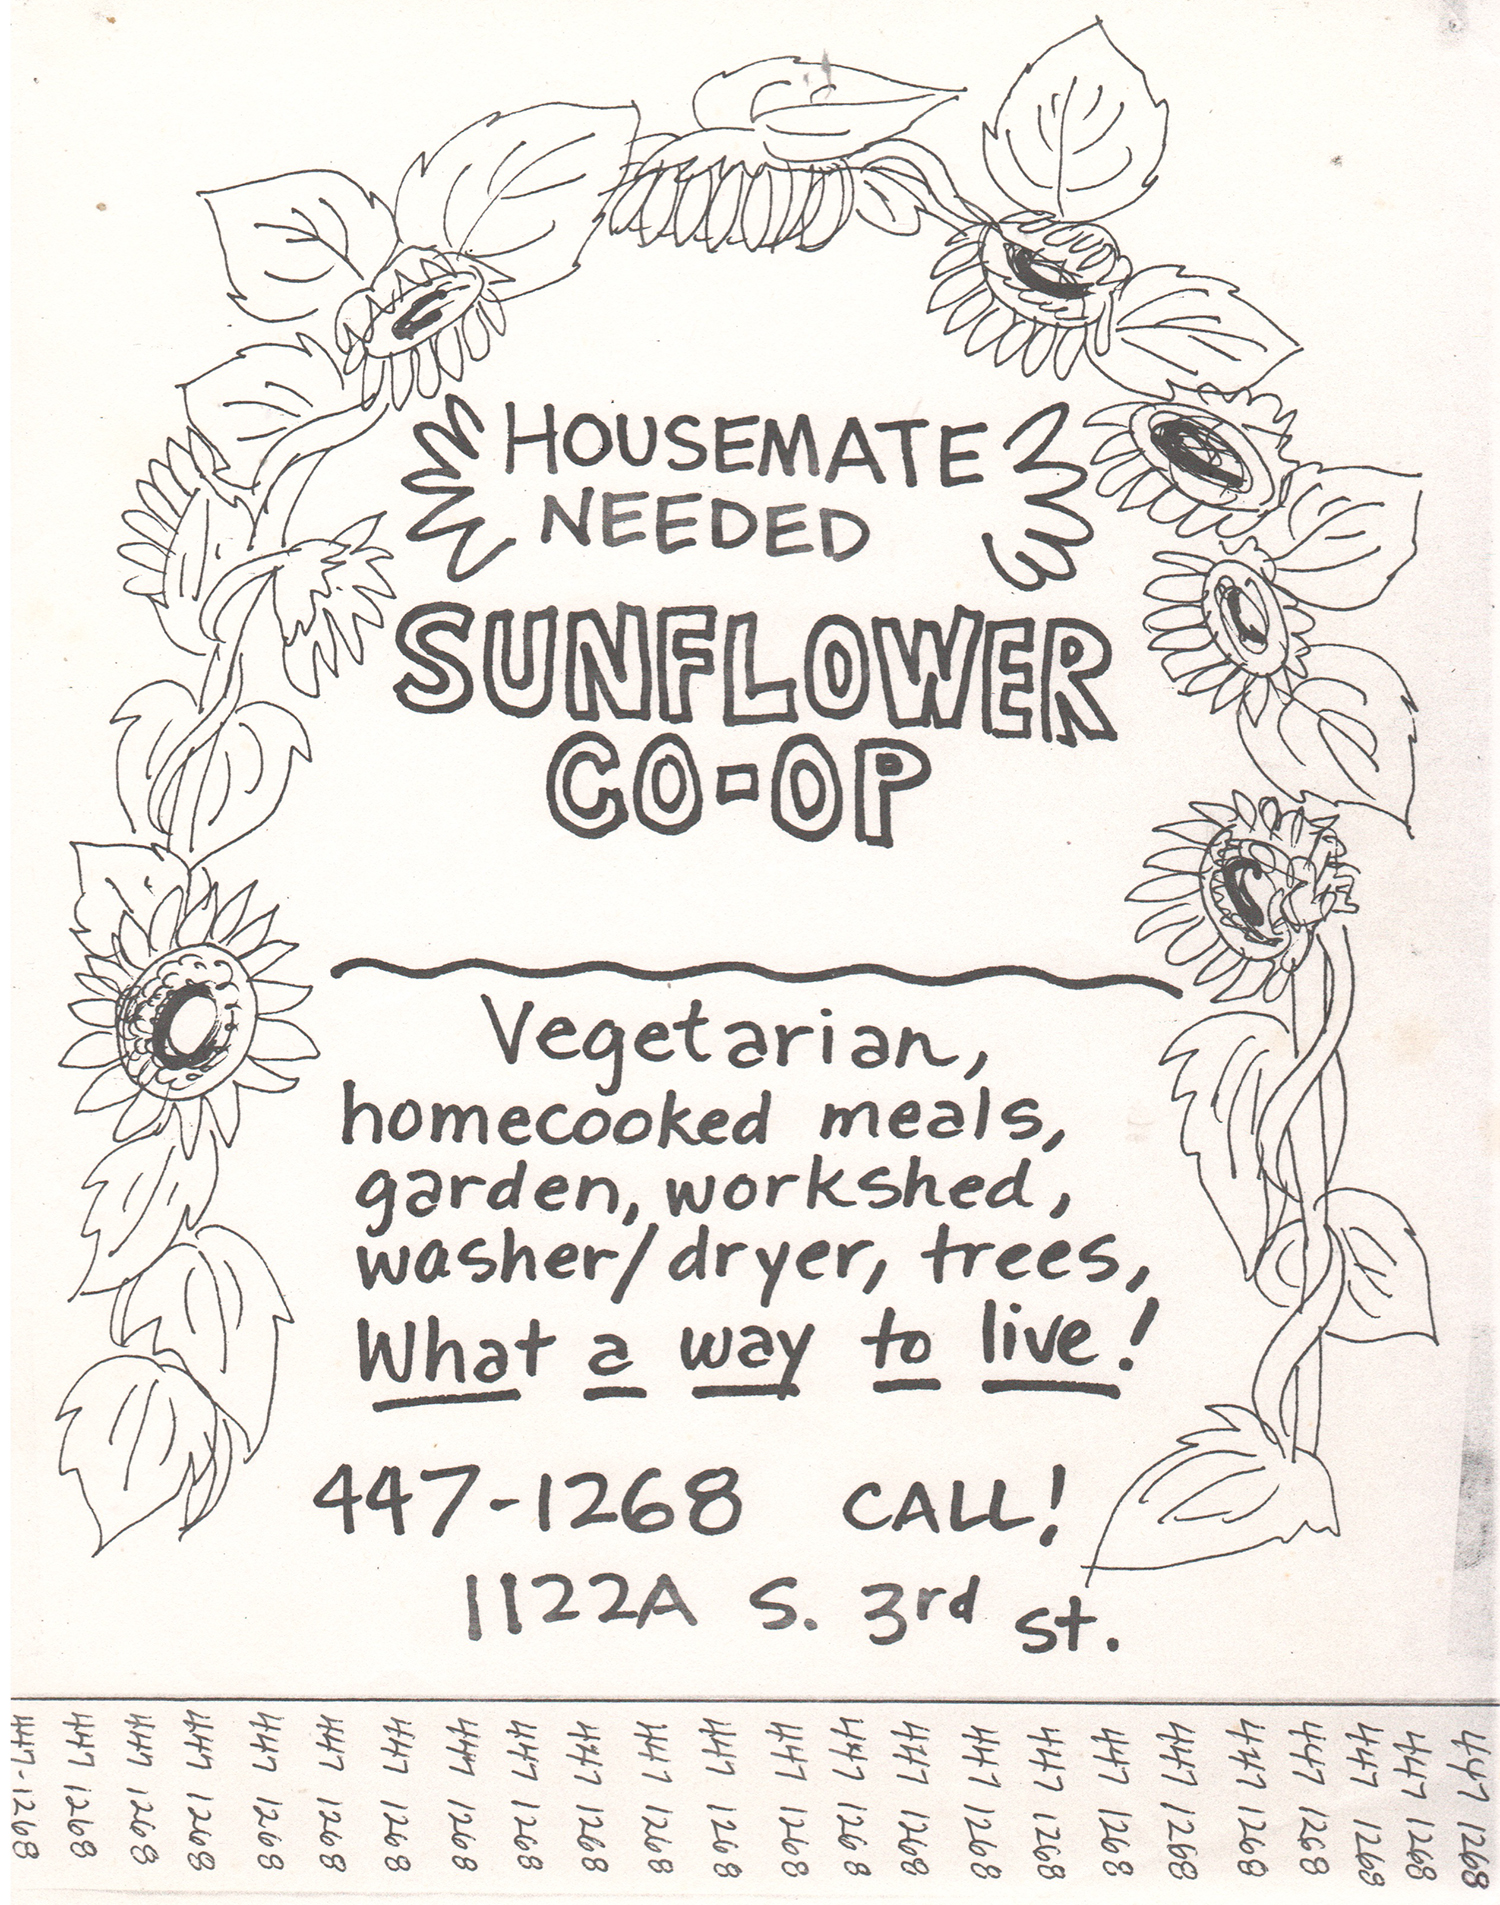 HOUSEMATE
NEEDED
SUNFLOWER
CO-OP
Vegetarian,
homecooked meals,
garden, workshed,
washer/dryer, trees,
What a way to live!
447-1268 CALL!
1122A S. 3rd st.
447-1268
447 1268
447 1268
447 1268
447 1268
447 1268
447 1268
447 1268
447 1268
447 1268
447 1268
447 1268
447 1268
447 1268
447 1268
447 1268
447 1268
447 1268
447 1268
447 1268
447 1268
447 1268
447 1268
447 1268